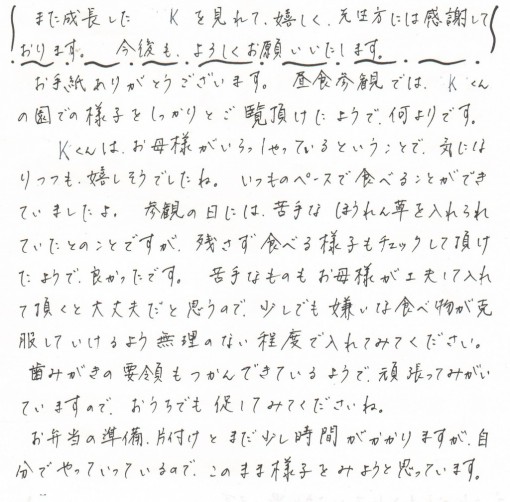 また成長した K を見れて、嬉しく、先生方には感謝して
おります。 今後も、よろしくお願いいたします。
お手紙ありがとうございます。 昼食参観では、Kくん
の園での様子をしっかりとご覧頂けたようで、何よりです。
Kくんは、お母様がいらっしゃっているということで、気には
りつつも、嬉しそうでしたね。 いつものペースで食べることができ
ていましたよ。 参観の日には、苦手なほうれん草を入れられ
ていたとのことですが、残さず食べる様子もチェックして頂け
たようで、良かったです。 苦手なものもお母様が工夫して入れ
て頂くと大丈夫だと思うので、少しでも嫌いな食べ物が克
服していけるよう無理のない程度で入れてみてください。
歯みがきの要領もつかんできているようで、頑張ってみがい
ていますので、おうちでも促してみてくださいね。
お弁当の準備、片付けとまだ少し時間がかかりますが、自
分でやっていっているので、このまま様子をみようと思っています。